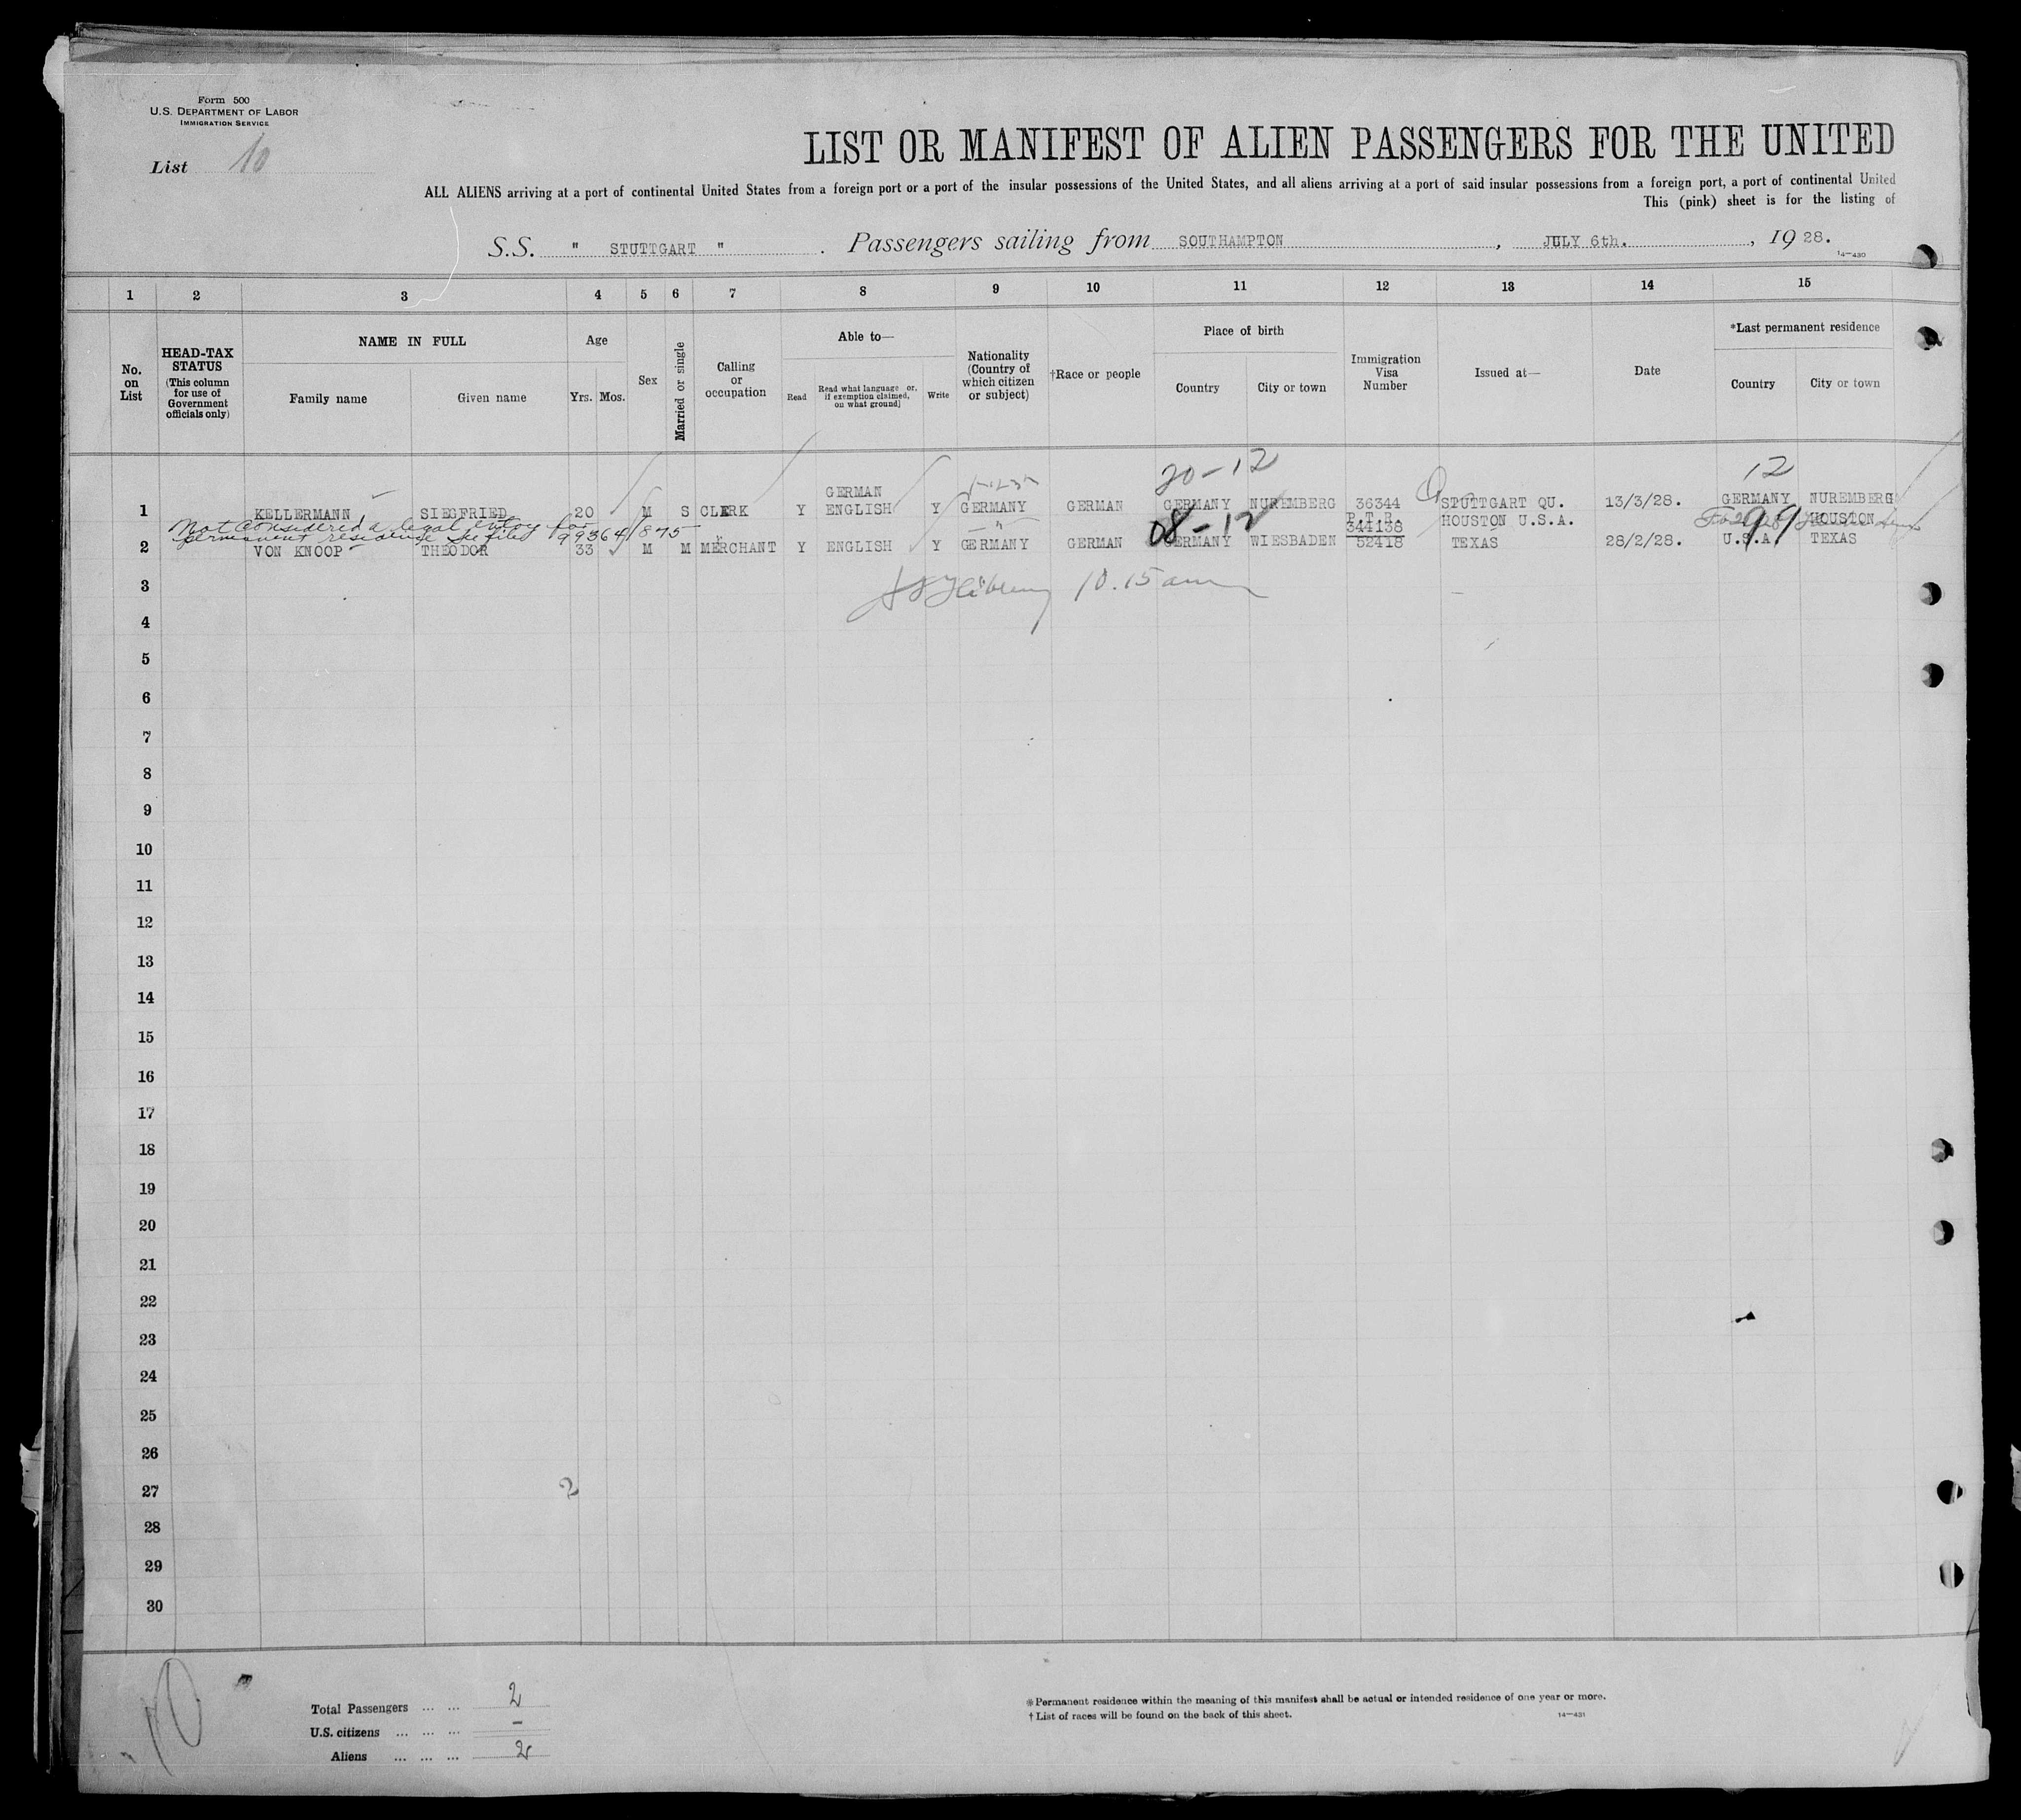 Form 500
U.S. DEPARTMENT OF LABOR
IMMIGRATION SERVICE
List 10
LIST OR MANIFEST OF ALIEN PASSENGERS FOR THE UNITED
ALL ALIENS arriving at a port of continental United States from a foreign port or a port of the insular possessions of the United States, and all aliens arriving at a port of said insular possessions from a foreign port, a port of continental United
This (pink) sheet is for the listing of
S.S. " STUTTGART ". Passengers sailing from SOUTHAMPTON, JULY 6th., 1928.
14—430
1 2 3 4 5 6 7 8 9 10 11 12 13 14 15
No. on List
HEAD-TAX STATUS (This column for use of Government officials only)
NAME IN FULL
Family name Given name
Age
Yrs. Mos.
Sex
Married or single
Calling or occupation
Able to—
Read Read what language or, if exemption claimed, on what ground] Write
Nationality (Country of which citizen or subject)
†Race or people
Place of birth
Country City or town
Immigration Visa Number
Issued at—
Date
*Last permanent residence
Country City or town
20-12 12
GERMAN
1 KELLERMANN SIEGFRIED 20 M S CLERK Y ENGLISH Y GERMANY GERMAN GERMANY NUREMBERG 36344 STUTTGART QU. 13/3/28. GERMANY NUREMBERG
Not considered a legal entry for
permanent residence See file 99364/875
08-12 P.T.R. 344138 HOUSTON U.S.A. 99 HOUSTON
2 VON KNOOP THEODOR 33 M M MERCHANT Y ENGLISH Y GERMANY GERMAN GERMANY WIESBADEN 52418 TEXAS 28/2/28. U.S.A. TEXAS
3 10.15 am
4
5
6
7
8
9
10
11
12
13
14
15
16
17
18
19
20
21
22
23
24
25
26
27 2
28
29
30
10
Total Passengers ... ... 2
U.S. citizens ... ... ... –
Aliens ... ... ... 2
* Permanent residence within the meaning of this manifest shall be actual or intended residence of one year or more.
† List of races will be found on the back of this sheet.
14—431